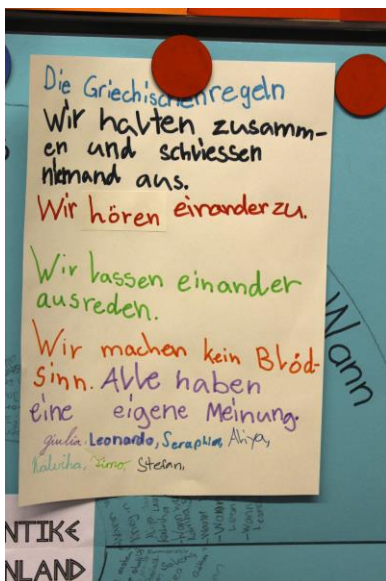 Die Griechischenregeln
Wir halten zusamm-
en und schliessen
niemand aus.
Wir hören einander zu.
Wir lassen einander
ausreden.
Wir machen kein Blöd-
sinn. Alle haben
eine eigene Meinung.
Giulia. Leonardo, Seraphin, Aliya,
Simo, Stefan.
Wann
NTIKE
NLAND